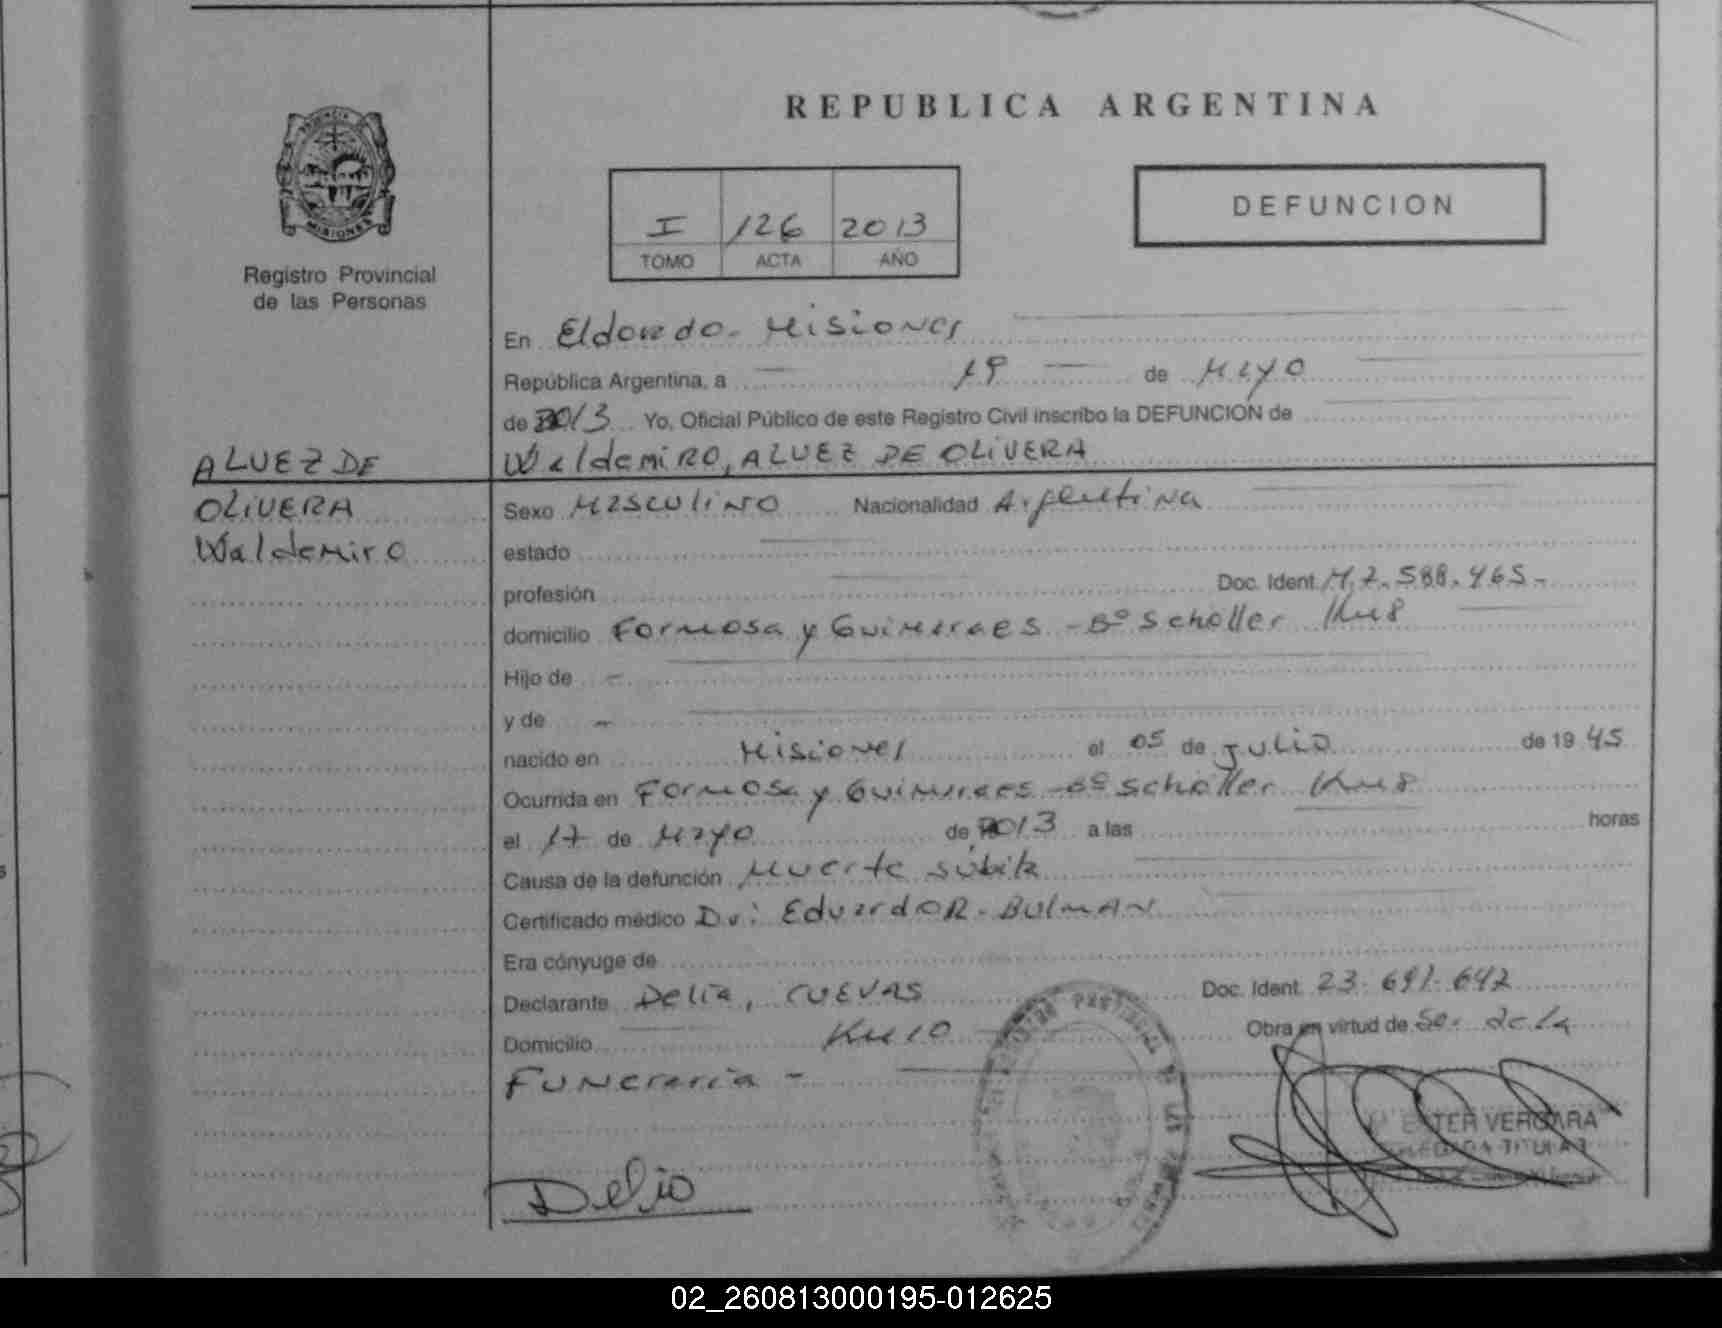 REPUBLICA ARGENTINA
PROVINCIA
MISIONES
Registro Provincial
de las Personas
I 126 2013
TOMO ACTA AÑO
DEFUNCION
En Eldorado - Misiones
República Argentina, a 19 de Mayo
de 2013 Yo, Oficial Público de este Registro Civil inscribo la DEFUNCION de
Waldemiro, ALVEZ DE OLIVERA
ALVEZ DE
OLIVERA
Waldemiro
Sexo Masculino Nacionalidad Argentina
estado
profesión Doc. Ident. M. 7.588.465.-
domicilio Formosa y Guimaraes - Bº Scholler Km 8
Hijo de -
y de -
nacido en Misiones el 05 de Julio de 1945
Ocurrida en Formosa y Guimaraes - Bº Scholler Km 8
el 17 de Mayo de 2013 a las horas
Causa de la defunción Muerte súbita
Certificado médico Dr: Eduardo R. BULMAN
Era cónyuge de
Declarante Delia, CUEVAS Doc. Ident. 23.691.642
Domicilio Km 10 Obra en virtud de Se. de la
Funeraria -
ESTER VERGARA
DELEGADA TITULAR
Delio
02_260813000195-012625